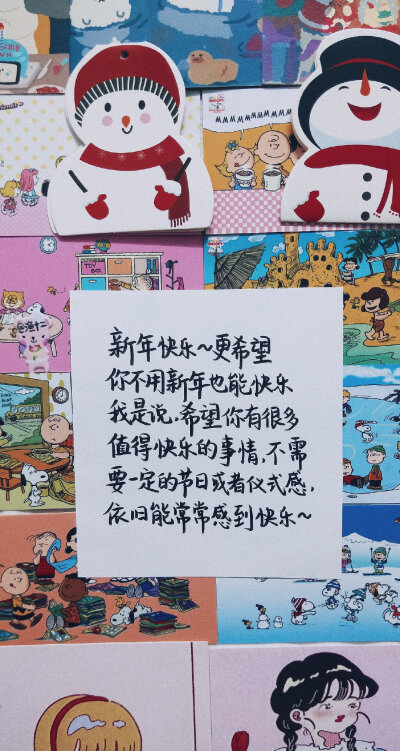 新年快乐~更希望
你不用新年也能快乐
我是说,希望你有很多
值得快乐的事情,不需
要一定的节日或者仪式感,
依旧能常常感到快乐~